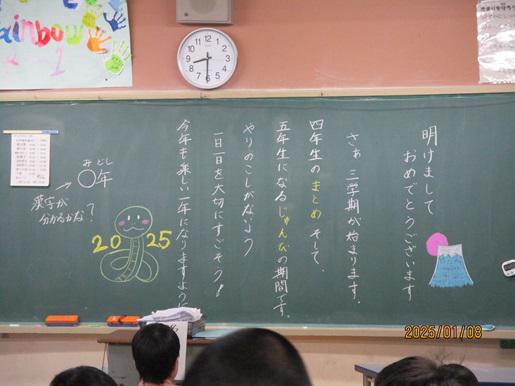 ainbow
明けまして
おめでとうございます
さぁ 三学期が始まります。
四年生の まとめ そして、
五年生になるじゅんびの期間です。
やりのこしがないよう
一日一日を大切にすごそう!
今年も楽しい一年になりますよう
みどし
○年
漢字が
分かるかな?
2025
2025/01/08